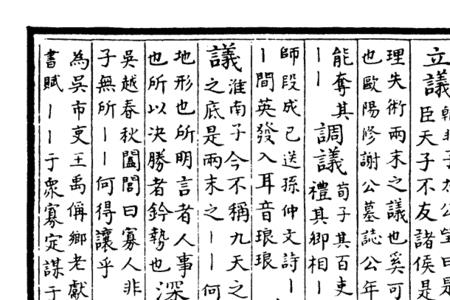 立議韓非子太公望曰是
臣天子不友諸侯是
理失術兩末之議也奚可
也歐陽修謝公墓誌公年
能奪其
丨丨
調議荀子其百吏
禮其卿相丨
師段成己送孫仲文詩丨
丨間英發入耳音琅琅
議淮南子今不稱九天之
之底是兩末之丨丨何
地形也所明言者人事
也所以決勝者鈐勢也
深
吳越春秋闔閭曰寡人非
子無所丨丨何得讓乎
為吳市吏王禹偁鄉老獻
書賦丨丨于衆寡定謀于